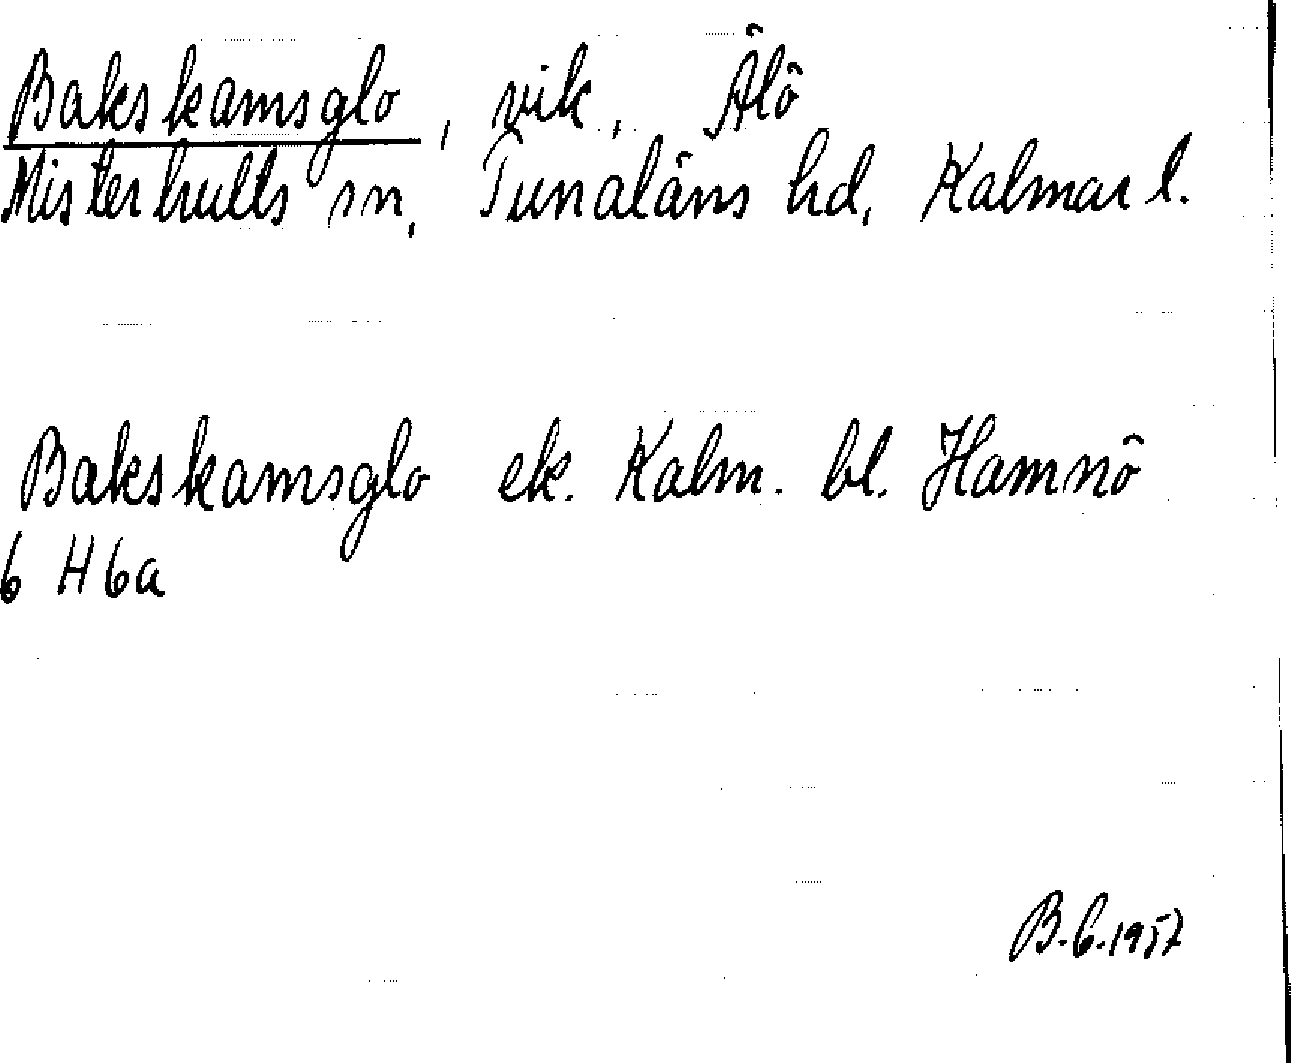 Bakskamsglo, vik, Älö
Misterhults sn, Tunaläns hd, Kalmar l.
Bakskamsglo ek. Kalm. bl. Hamnö
6 H 6a
B. G. 1957